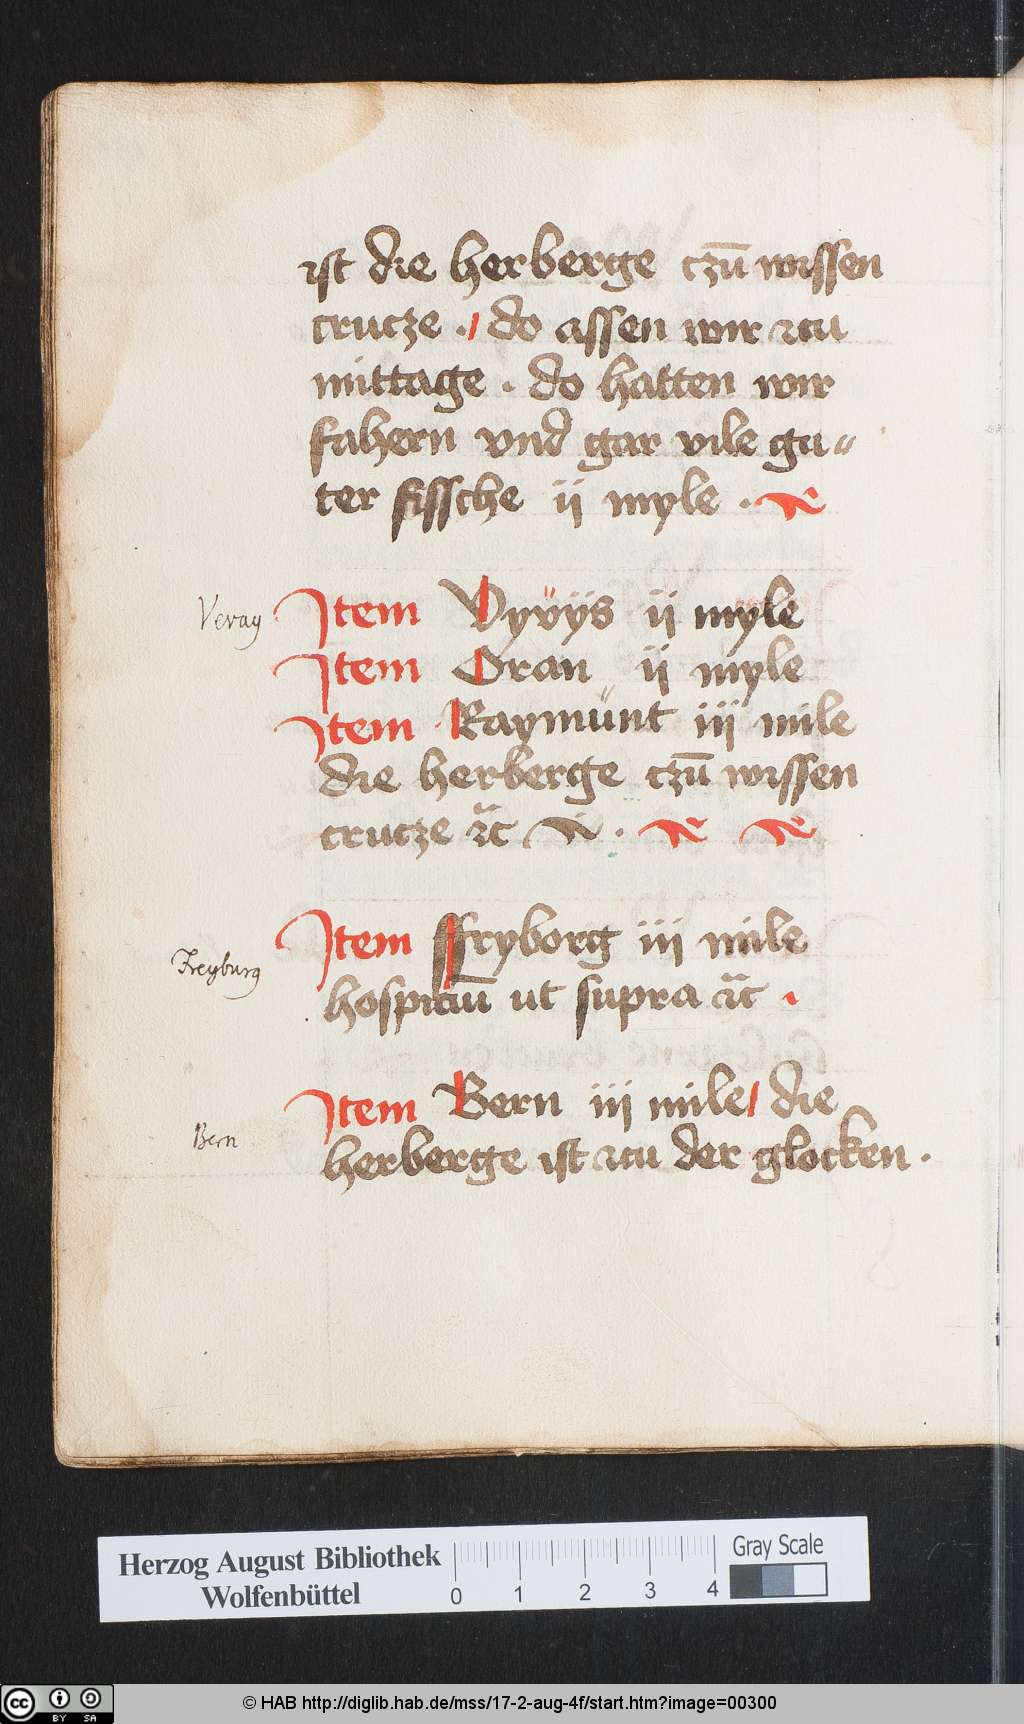 ist die herberge czū wissen
crucze . / do assen wir zcu
mittage . do hatten wir
fahern vnd gar vile gu〃
ter fissche ii myle .
Veray
Item Vyvijs ii myle
Item Oran ii myle
Item Raymünt iii mile
die herberge czū wissen
crucze ꝛc .
Freyburg
Item ffryborg iii mile
hospiciū ut supra ꝛc .
Item Bern iii mile / die
Bern
herberge ist zcu der glocken .
Herzog August Bibliothek
Wolfenbüttel
0 1 2 3 4
Gray Scale
cc BY SA
© HAB http://diglib.hab.de/mss/17-2-aug-4f/start.htm?image=00300